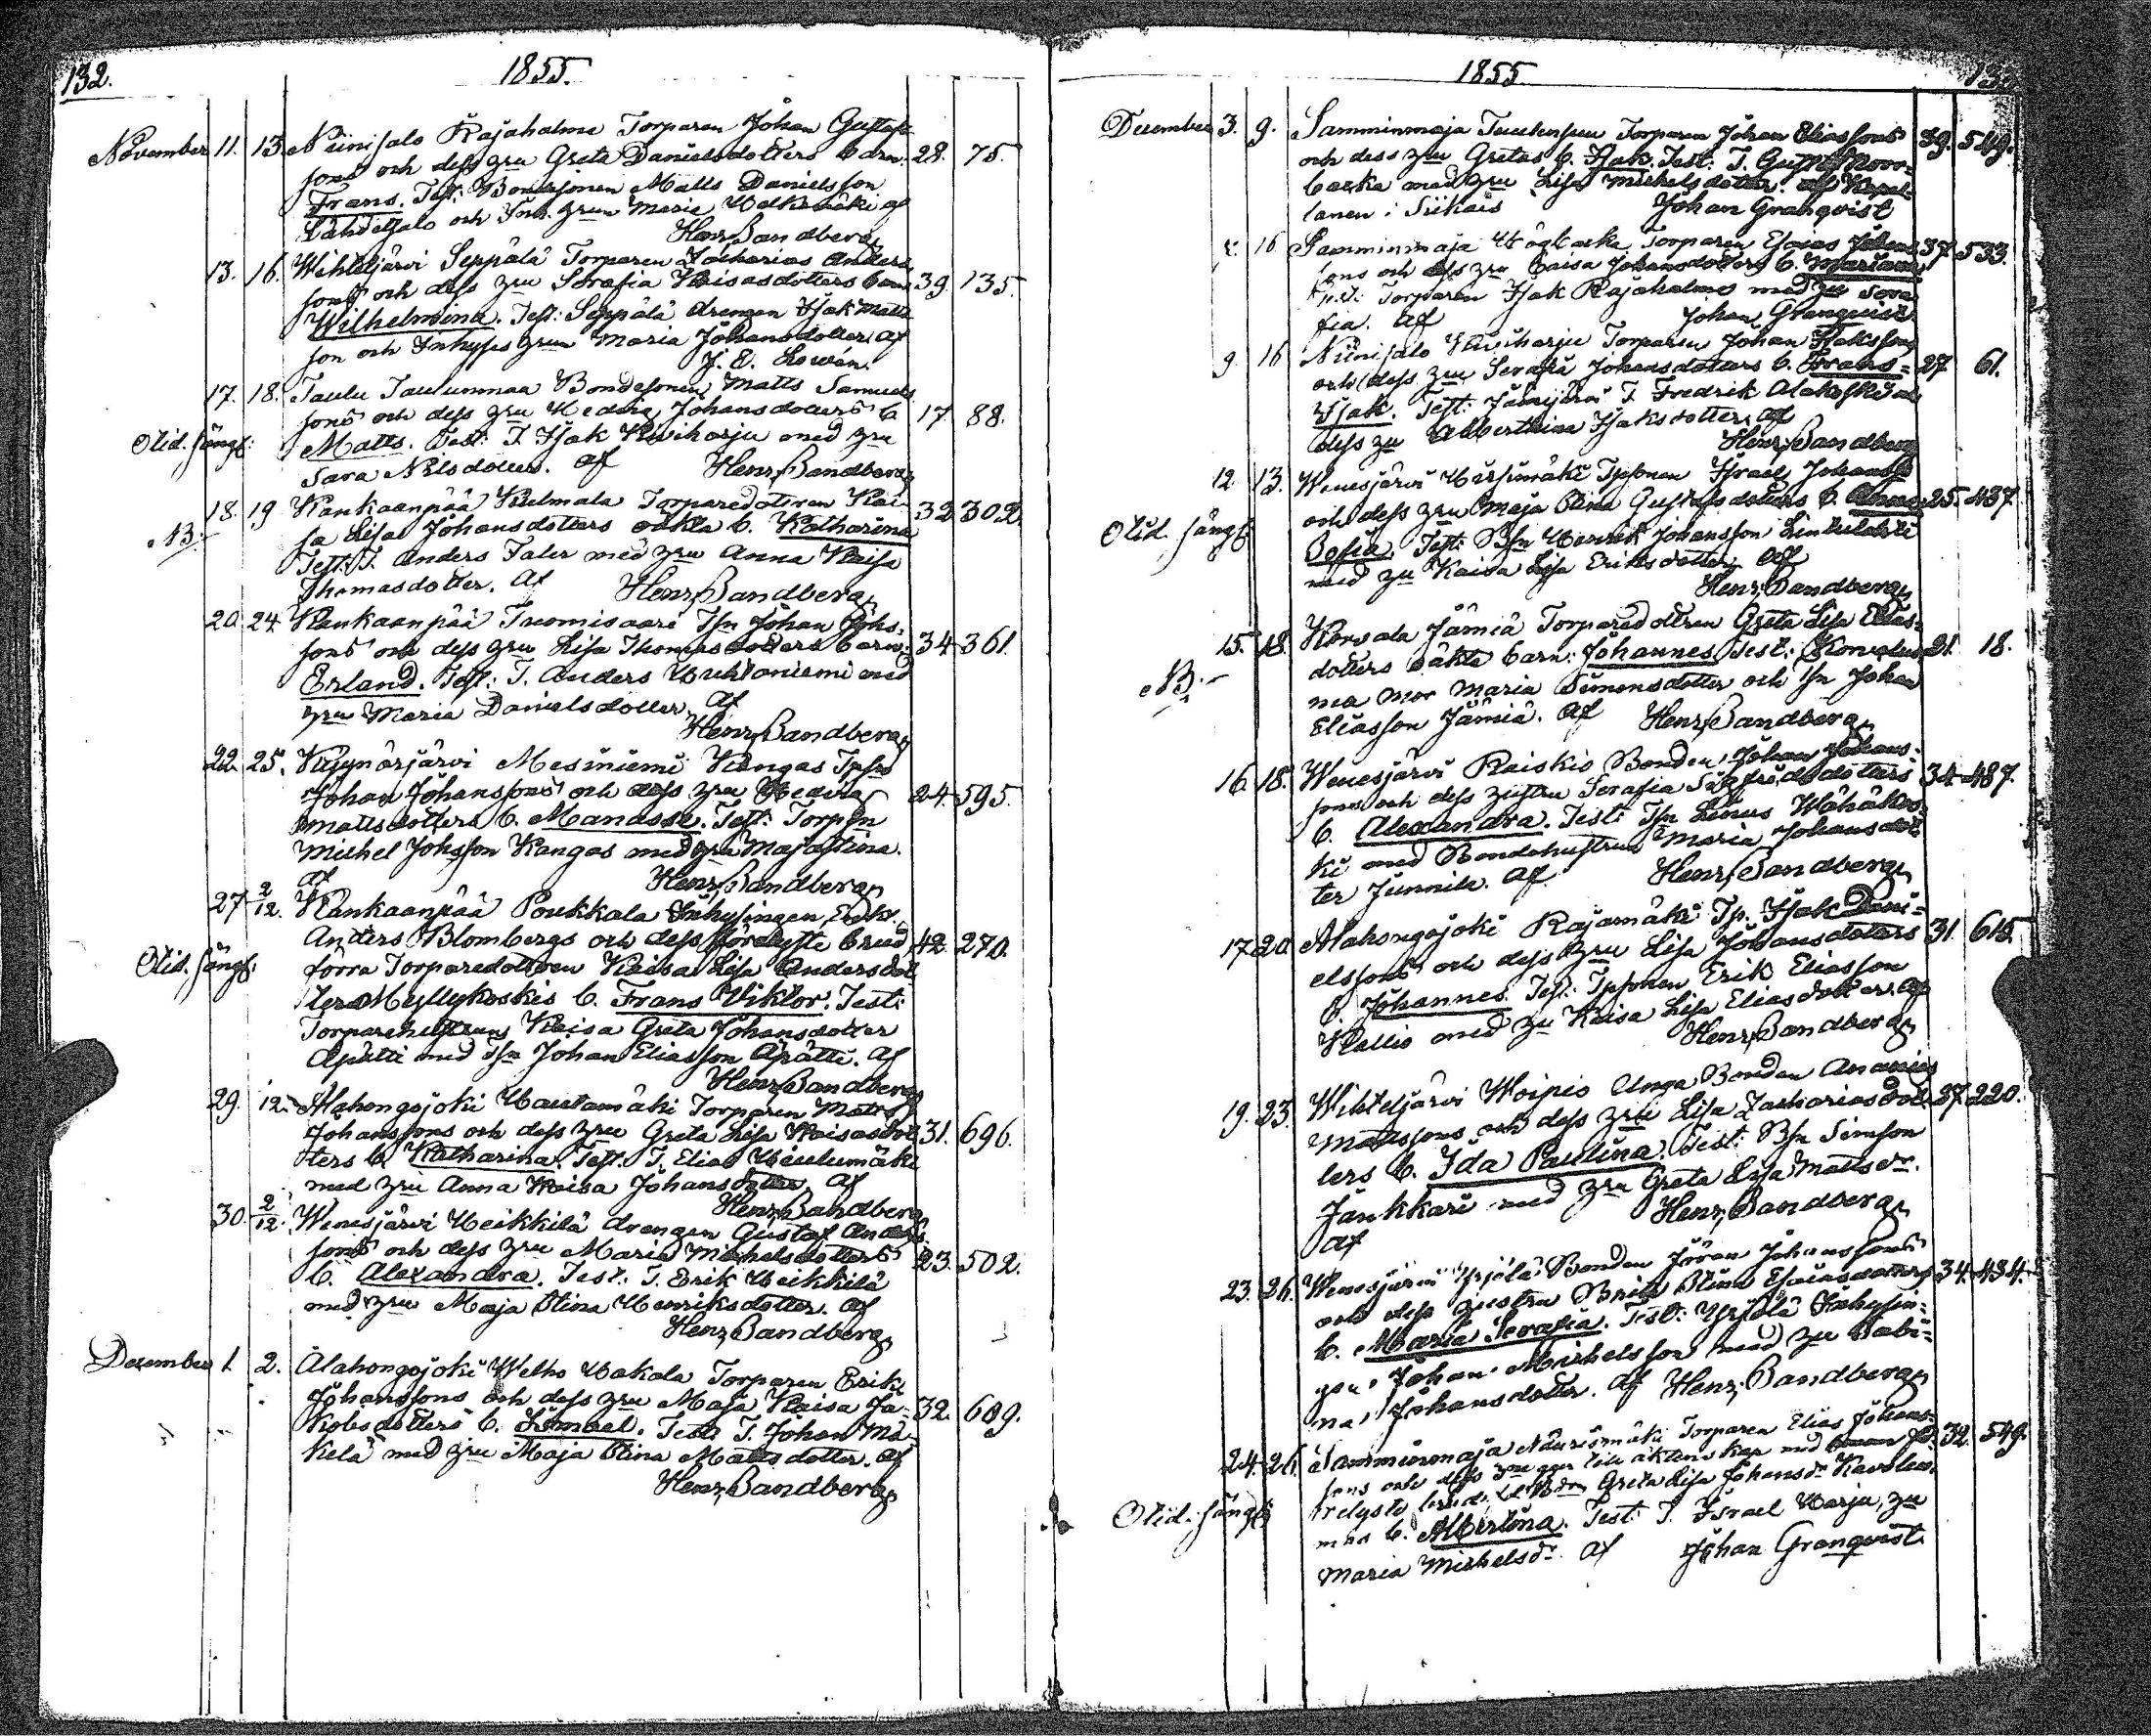 132.
1855.
November 11. 13. Niinisalo Rajahalme Torparen Johan Gustafs
sons och dess hru Greta Danielsdotters barn 28. 75.
Frans. Test: Bondesonen Matts Danielsson
Lähdesjalo och Inh. hrun Maria af
Henr. Sandberg
13. 16. Wihteljärvi Seppälä Torparen Zacharias Anders
sons och dess hru Serafia Kaisasdotters barn 39. 135.
Wilhelmina. Test: Seppälä drengen Isak Matts
son och Inhyses hrun Maria Johansdotter af
J. E. Lowén.
17. 18. Taulu Taulunmaa Bondesonen Matts Samuels
sons och dess hru Hedvig Johansdotters b. 17. 88.
Oäd. sängs: Matts. Test: T. Isak Kiviharju med hru
Sara Nilsdotter. af Henr. Sandberg
18. 19 Kankaanpää Kulmala Torparedottren Kai-
sa Lisa Johansdotters oäkta b. Katharina 32. 302.
NB:
Test: T. Anders Faler med hru Anna Kaisa
Thomasdotter. Af Henr. Sandberg
20. 24. Kankaanpää Tuomisaari Tsn Johan Johs-
sons och dess hru Lisa Thomasdotters barn 34. 361.
Erland. Test: T. Anders Huhtaniemi med
hru Maria Danielsdotter. Af
Henr. Sandberg
22. 25. Kyynärjärvi Mesiniemi Kangas Tpsn
Johan Johanssons och dess hru Hedvig 24. 595.
Mattsdotters b. Manasse. Test: Torpsn
Michel Johsson Kangas med hru Maja Stina.
af Henr. Sandberg
27 2/12. Kankaanpää Poukkala Inhysingen Enkl.
Anders Blombergs och dess förelyste brud 42. 270.
Oäd. sängs: förra Torparedottren Kaisa Lisa Andersdot
ters Myllykoskis b. Frans Viktor. Test:
Torparehustrun Kaisa Greta Johansdotter
med Tsn Johan Eliasson af
Henr. Sandberg
29. 12. Alahongojoki Hautamäki Torparen Matts
Johanssons och dess hru Greta Lisa Kaisasdot 31. 696.
ters b. Katharina. Test: T. Elias
med hru Anna Kaisa Johansdotter. af
Henr. Sandberg
30. 2/12. Wenesjärvi Heikkilä drengen Gustaf Anders
sons och dess hru Maria Michelsdotters 23. 502.
b. Alexandra. Test: T. Erik Heikkilä
med hru Maja Stina Henriksdotter. af
Henr. Sandberg
December 1. 2. Alahongojoki Welho Hakala Torparen Erik
Johanssons och dess hru Maja Kaisa Ja- 32. 609.
kobsdotters b. Test: T. Johan Mä-
kelä med hru Maja Stina Mattsdotter. af
Henr. Sandberg
1855
December 3. 9. Samminmaja Torparen Johan Eliassons 39. 549.
och dess hru Gretas b. Isak. Test: T. Gust: Moor-
backa med hru Lisa Michelsdotter. af Kapel-
lanen i Siikais Johan Granqvist
16 Samminmaja Högbacka Torparen Esaias Johans 37. 533.
sons och dess hru Caisa Johansdotters b. Mariana
Test: Torparen Isak Rajahalme med hru Sera
fia. Af Johan Granqvist
9. 16 Niinisalo Kiviharju Torparen Johan Isakssons
och dess hru Serafia Johansdotters b. Frans- 27 61.
Isak. Test: Jämijärvi T. Fredrik Alakoski
dess hu Albertina Isaksdotter. af
Henr. Sandberg
12. 13. Wenesjärvi Tpsonen Israel Johans
och dess hru Maja Stina Gustafsdotters b. Anna 25. 487.
Oäd. sängs: Sofia. Test: Bsn Henrik Johansson
med hu Kaisa Lisa Eriksdotter. af
Henr. Sandberg
15. 18. Jämiä Torparedottren Greta Lisa Elias-
dotters oäkta barn: Johannes. Test: 21. 18.
NB.
mor Maria Simonsdotter och Tsn Johan
Eliasson Jämiä. af Henr. Sandberg
16. 18. Wenesjärvi Raiskio Bonden Johan Johans-
sons och dess hustru Serafia Sigfridsdotters 34. 487.
b. Alexandra. Test: Tsn Linus Wähäkos-
ki med Bondehustrun Maria Johansdot
ter Junnila. af Henr. Sandberg
17. 20. Alahongojoki Rajamäki Tp. Isak Dani-
elssons och dess hru Lisa Johansdotters 31. 615.
b. Johannes. Test: Tpsonen Erik Eliasson
Kallio med hu Kaisa Lisa Eliasdotter. af
Henr. Sandberg
19. 23. Wihteljärvi Woipio Unga Bonden Ananias
Mattssons och dess hru Lisa Zachariasdot 37. 220.
ters b. Ida Paulina. Test: Bsn Simson
Jankkari med hru Greta Lisa Mattsdr.
af Henr. Sandberg
23. 26. Wenesjärvi Yrjölä Bonden Jöran Johanssons
och dess hustru Brita Stina Esaiasdotters 34. 484.
b. Maria Serafia. Test: Yrjölä Inhysin-
gen Johan Michelsson med hu Sabi-
na Johansdotter. af Henr. Sandberg
24. 26. Samminmaja Nauriсmäki Torparen Elias Johans-
sons och dess äktenskap med 32. 549.
Oäd. sängs Greta Lisa Johansdr
b. Albertina. Test: T. Israel Harju, hu
Maria Michelsdr. Af Johan Granqvist